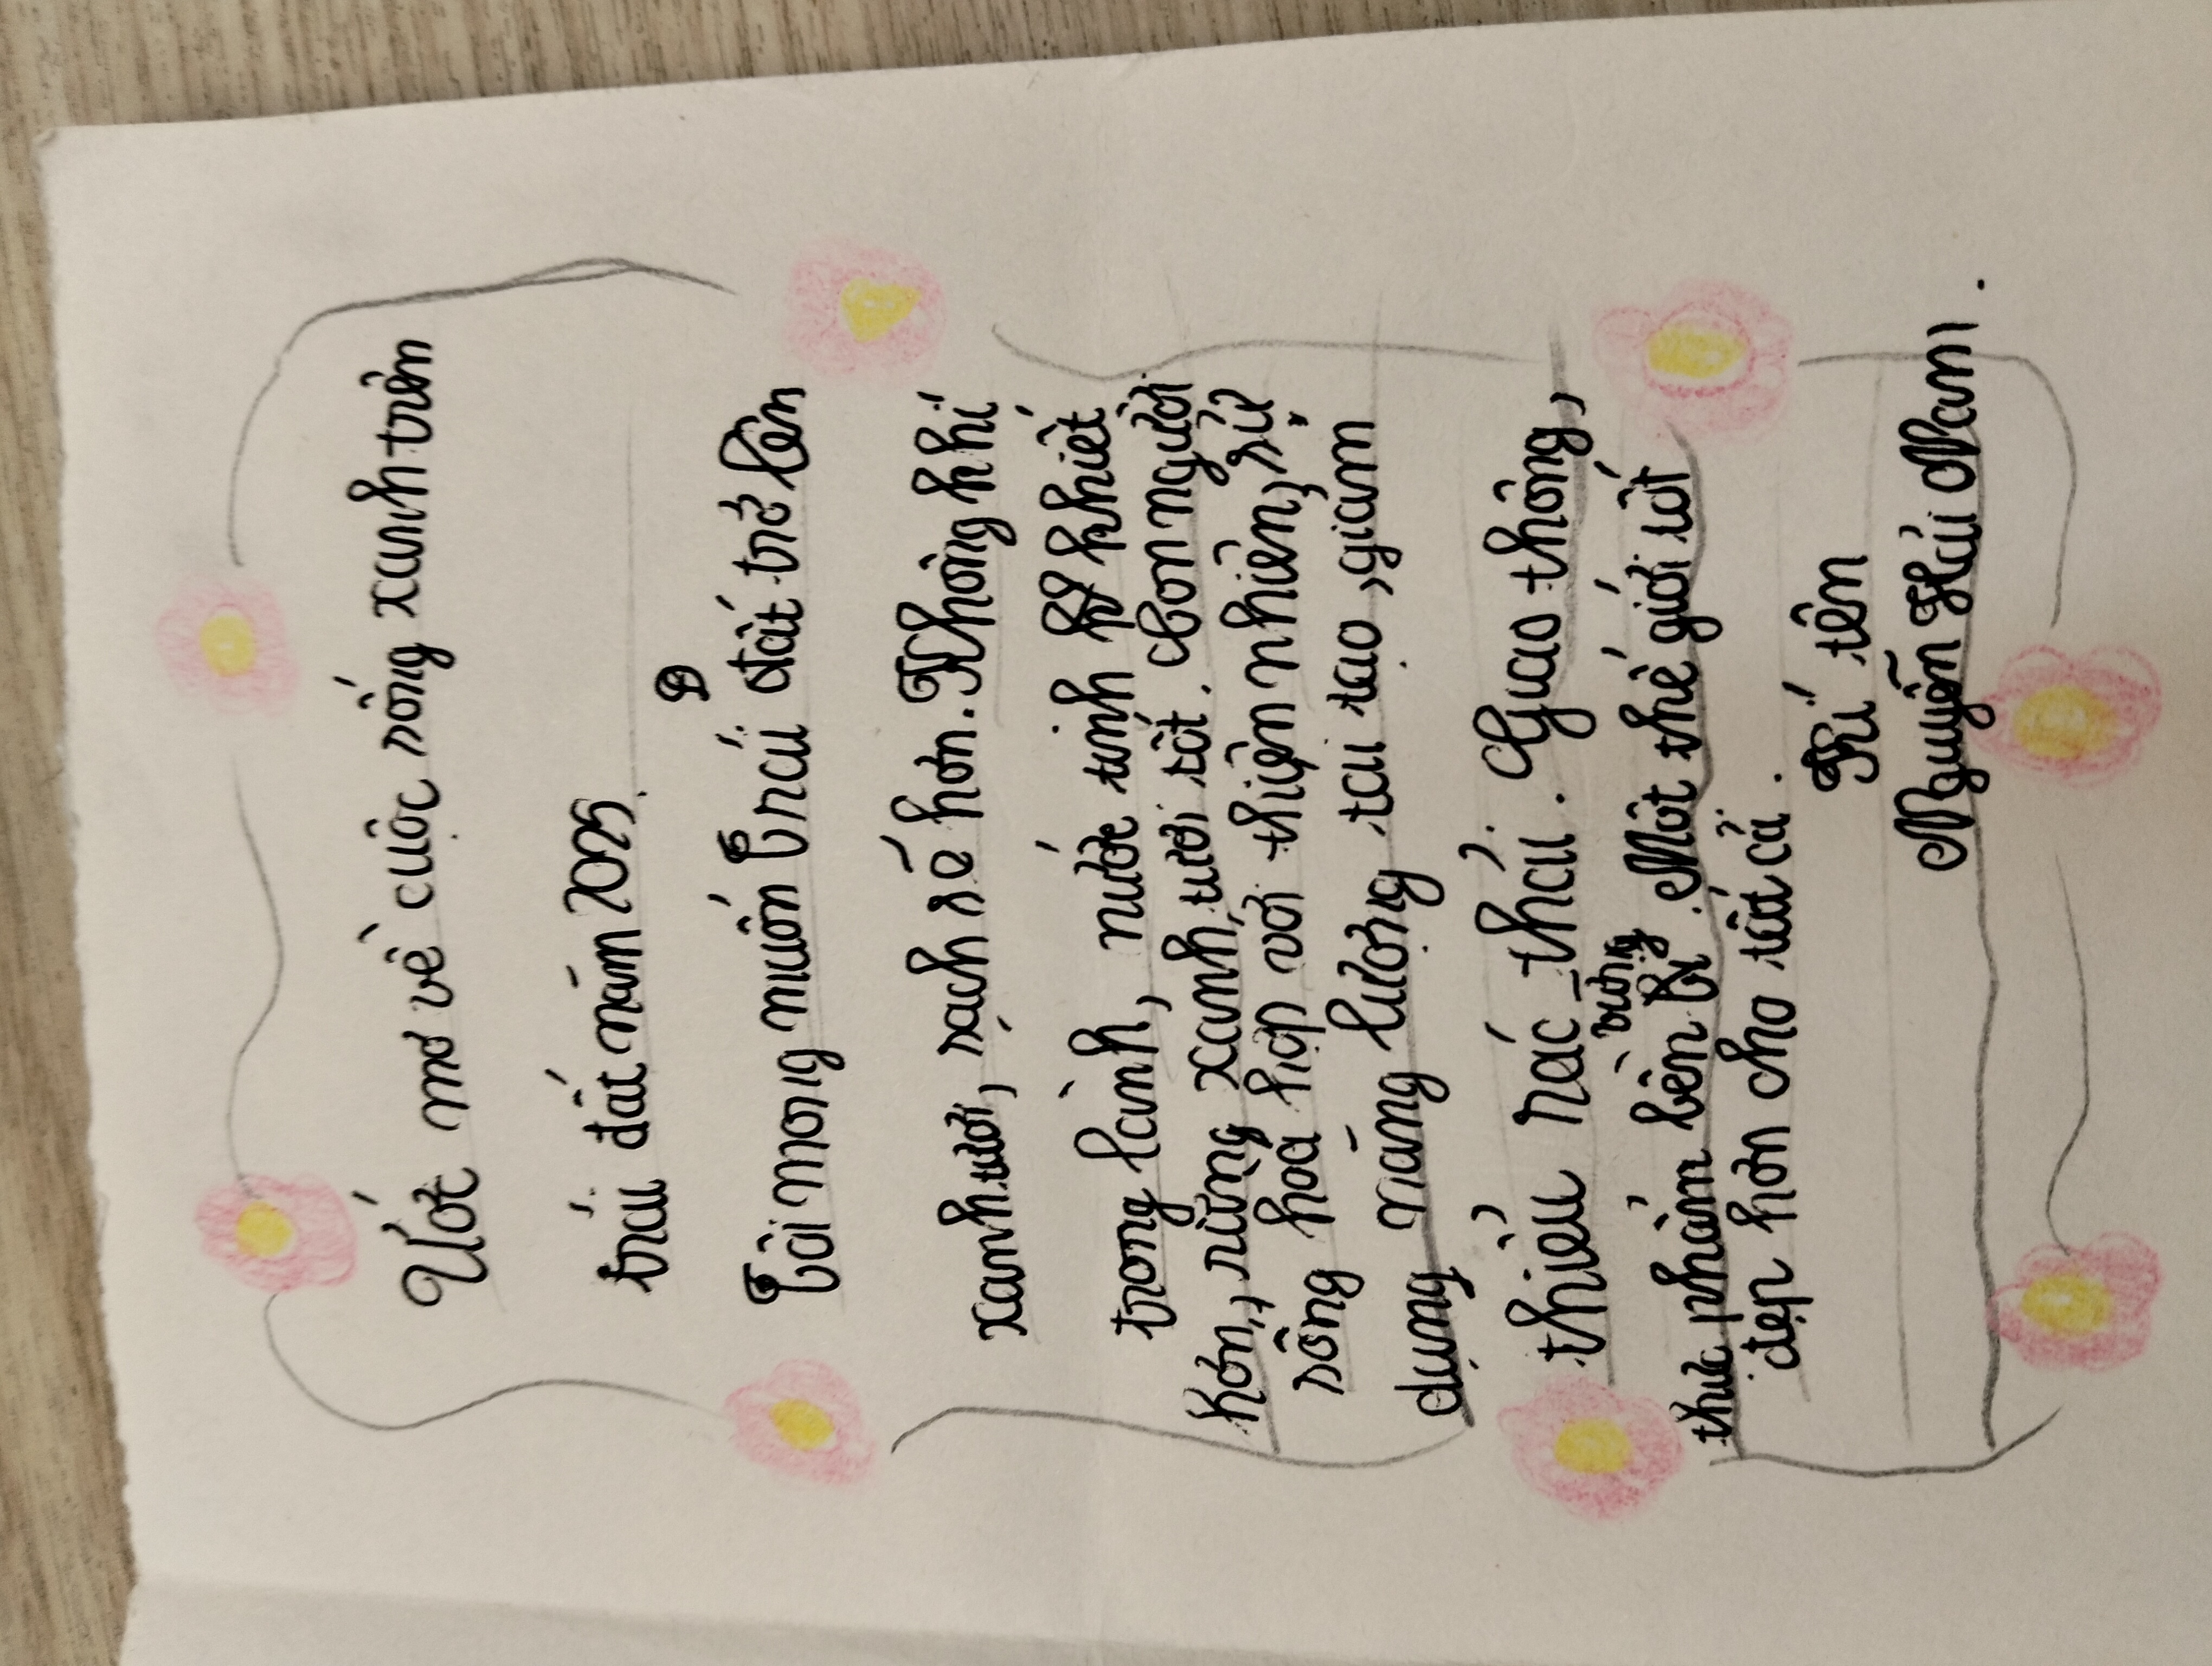 Ước mơ về cuộc sống xanh trên
trái đất năm 2025.
Tôi mong muốn Trái Đất trở lên
xanh tươi, sạch sẽ hơn. Không khí
trong lành, nước tinh khiết
hơn, rừng xanh, tươi tốt. Con người
sống hoà hợp với thiên nhiên, sử
dụng năng lượng tái tạo, giảm
thiểu rác thải. Giao thông,
thực phẩm bền vững. Một thế giới tốt
đẹp hơn cho tất cả.
Kí tên
Nguyễn Hải Nam.